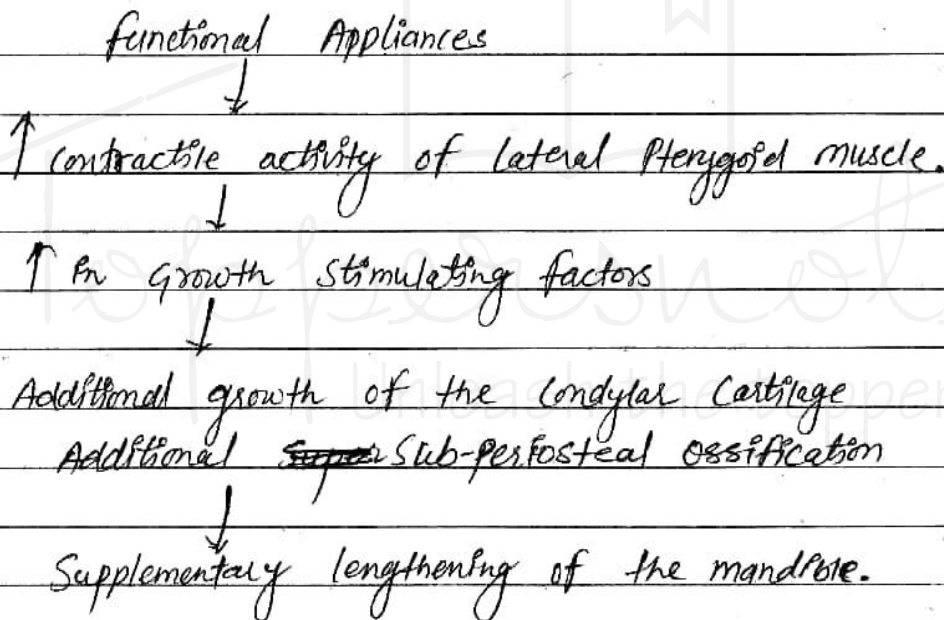 functional Appliances
↓
↑ Contractile activity of Lateral Pterygoid muscle.
↓
↑ in Growth Stimulating factors
↓
Additional growth of the Condylar Cartilage
Additional Sub-periosteal ossification
↓
Supplementary lengthening of the mandible.
Toppersnotes
Unleash the topper